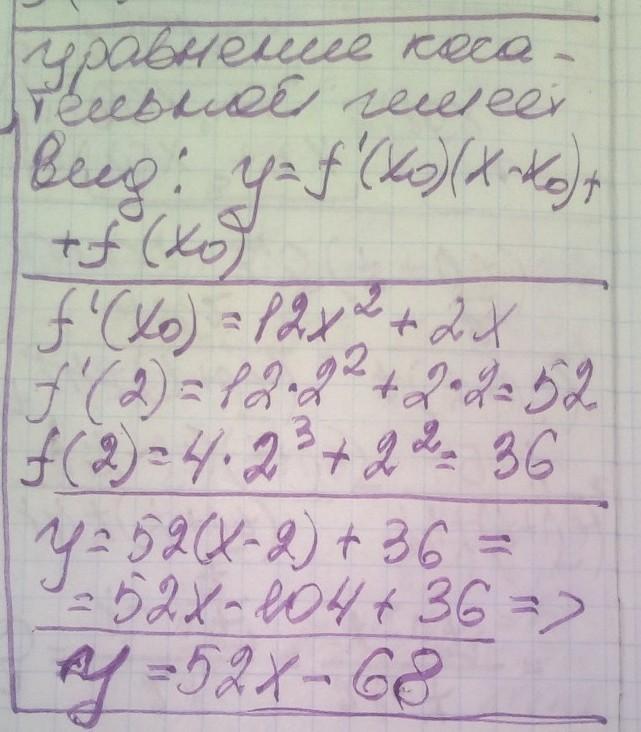 уравнение каса-
тельной имеет
вид: y=f'(x₀)(x-x₀)+
+f(x₀)
f'(x₀)=12x²+2x
f'(2)=12·2²+2·2=52
f(2)=4·2³+2²=36
y=52(x-2)+36=
=52x-104+36=>
y=52x-68